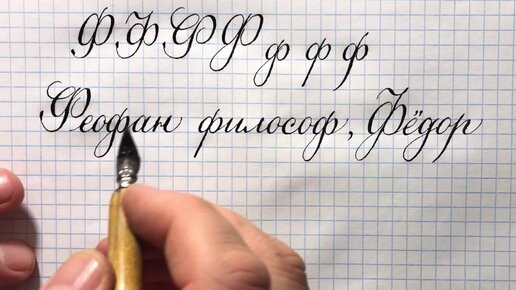 Ф Ф Ф Ф ф ф ф
Феофан философ, Фёдор